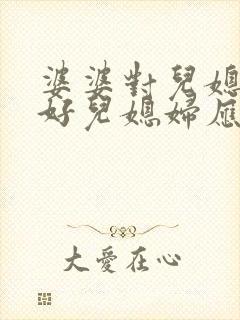 婆婆對兒媳
好兒媳婦應
大愛在心